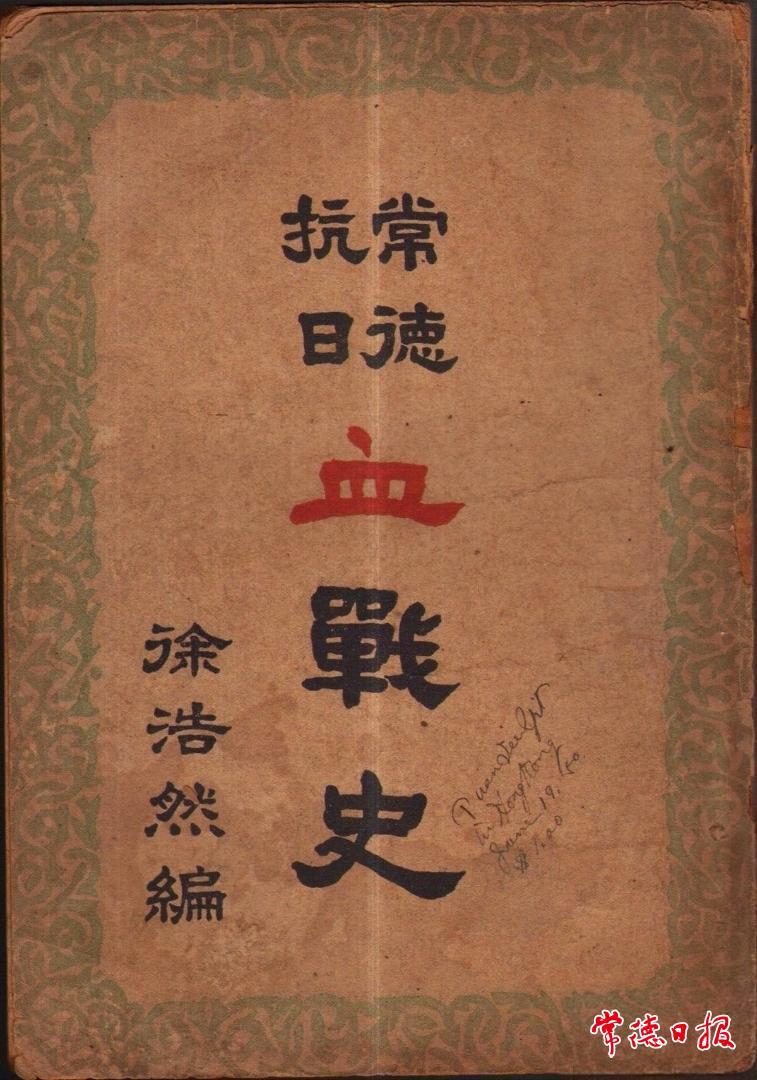 常德
抗日
血戰史
徐浩然編
in Hong Kong
June 19, '50
$1.00
常德日报